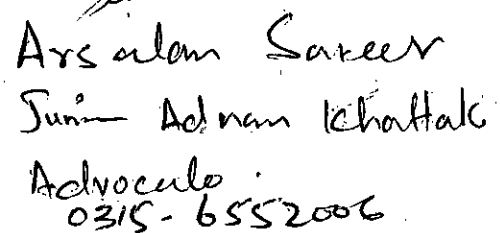 Arsalan Sareer
Junior Adnan Khattak
Advocate.
0315-6552006